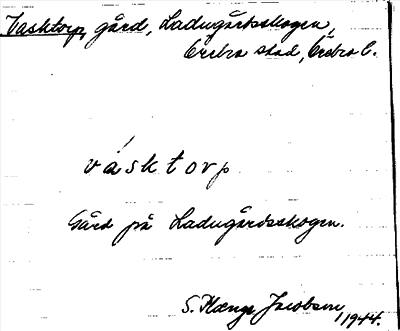 Vasktorp, gård, Ladugårdsskogen,
Örebro stad, Örebro l.
vásktorp
Gård på Ladugårdsskogen.
S. Jacobson, 1944.